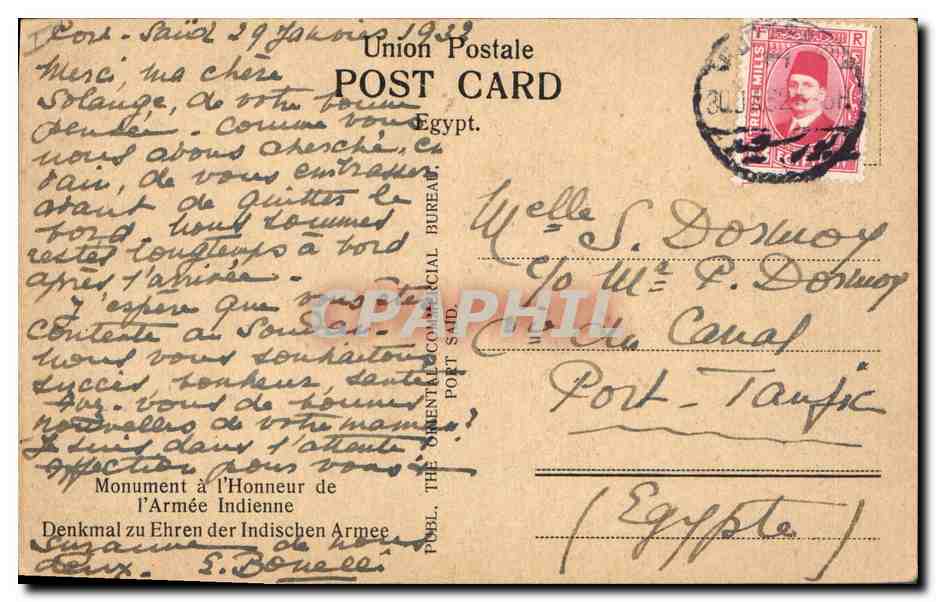 Port-Saïd 29 Janvier 1932
Merci, ma chère
Solange, de votre bonne
pensée. Comme vous
nous avons cherché, en
vain, de vous embrasser
avant de quitter le
bord. Nous sommes
restés longtemps à bord
après l'arrivée.
J'espère que vous êtes
contente au Soudan.
Nous vous souhaitons
succès, bonheur, santé
Avez-vous de bonnes
nouvelles de votre maman?
Je suis dans l'attente!
affection pour vous
Monument à l'Honneur de
l'Armée Indienne
Denkmal zu Ehren der Indischen Armee
Suzanne de nous
deux. E. Bonelli
Union Postale
POST CARD
Egypt.
PUBL. THE ORIENTAL COMMERCIAL BUREAU,
PORT SAID.
CPAPHIL
Melle S. Dormoy
c/o Mr P. Dormoy
Cie du Canal
Port-Taufic
(Egypte)
MILLS